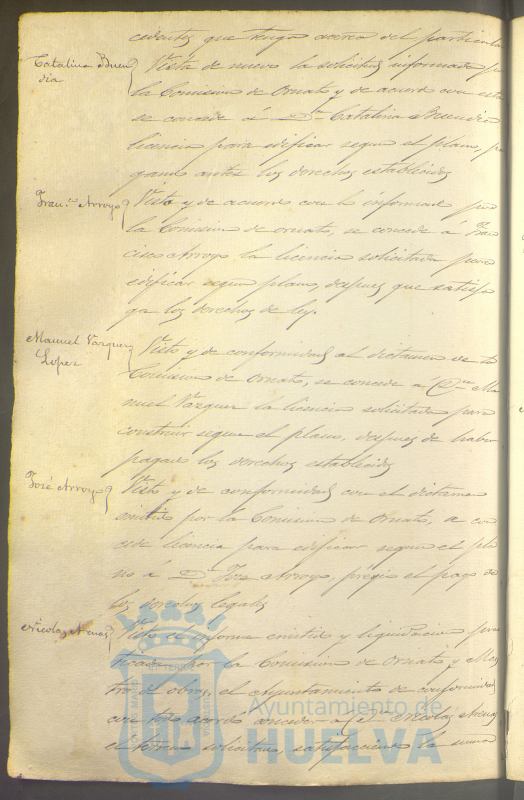 cedentes que tenga acerca del particular
Catalina Buen
dia
Vista de nuevo la solicitud informada por
la Comision de Ornato y de acuerdo con esta
se concede á Dª Catalina Buendia
licencia para edificar segun el plano, pa
gando antes los derechos establecidos
Franco Arroyo
Visto y de acuerdo con lo informado por
la Comision de ornato, se concede á Fran
cisco Arroyo la licencia solicitada para
edificar segun plano, despues que satisfa
ga los derechos de ley.
Manuel Vazquez
Lopez
Visto y de conformidad al dictamen de la
Comision de Ornato, se concede á Dn Ma
nuel Vazquez la licencia solicitada para
construir segun el plano, despues de haber
pagado los derechos establecidos
José Arroyo
Visto y de conformidad con el dictamen
emitido por la Comision de Ornato, se con
cede licencia para edificar segun el pla
no á Dn José Arroyo, previo el pago de
los derechos legales
Nicolas Arenas
Visto el informe emitido y liquidacion prac
ticada por la Comision de Ornato y Maes
tro de obras, el Ayuntamiento de conformidad
con todo acordó conceder á D. Nicolás Arenas
el terreno solicitado, satisfaciendo la suma
Ayuntamiento de
HUELVA